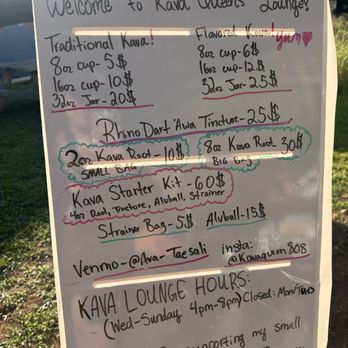 Welcome to Kava Queens Lounge!
Traditional Kava!
8oz cup-5$
16oz cup-10$
32oz Jar-20$
Flavored Kava! yum
8oz cup-6$
16oz cup-12$
32oz Jar-25$
Rhino Dart 'Awa Tincture-25$
2oz Kava Root-10$
SMALL BAG
8oz Kava Root 30$
BIG Bag
Kava Starter Kit-60$
4oz Root, Tincture, Aluball, Strainer
Strainer Bag-5$ Aluball-15$
Venmo-@Ava-Taesali insta: @Kavaqueen808
KAVA LOUNGE HOURS:
(Wed-Sunday 4pm-8pm) Closed: Mon/Tues
supporting my small